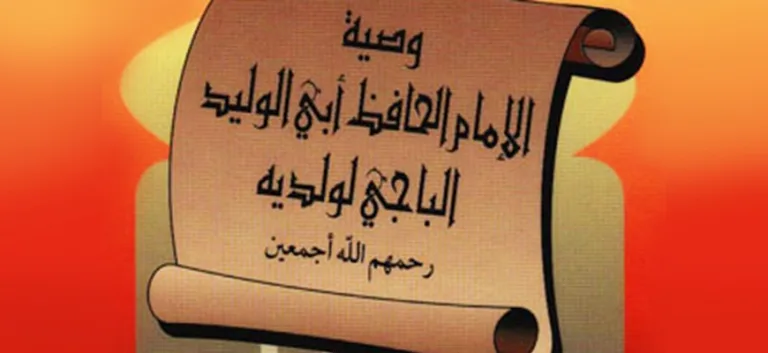 وصية
الإمام الحافظ أبي الوليد
الباجي لولديه
رحمهم الله أجمعين